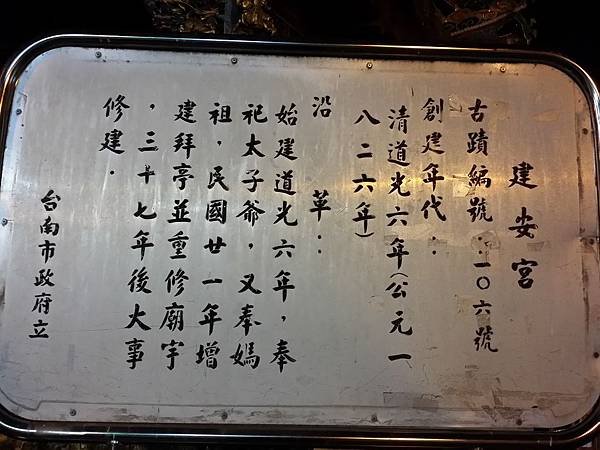 建安宮
古蹟編號：一〇六號
創建年代：
清道光六年（公元一
八二六年）
沿革：
始建道光六年，奉
祀太子爺，又奉媽
祖，民國廿一年增
建拜亭並重修廟宇
，三十七年後大事
修建．
台南市政府立